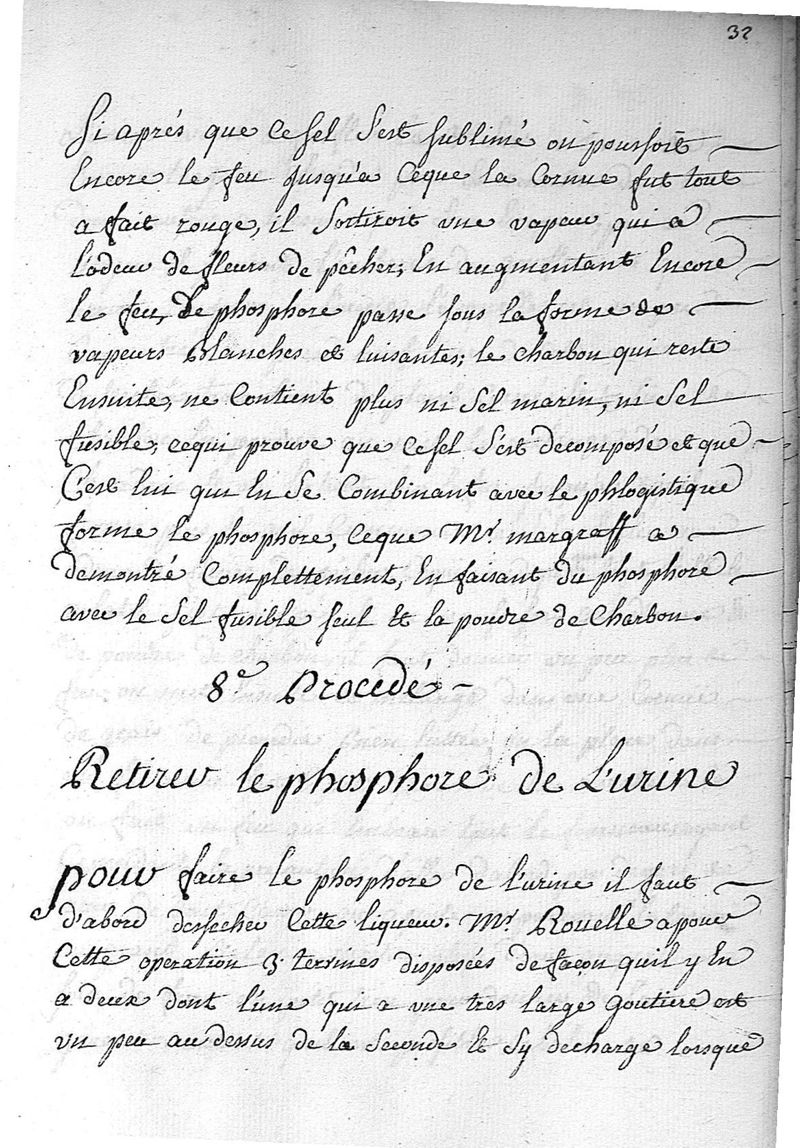 32
Si aprés que ce sel s'est sublimé on poussoit
Encore le feu jusqu'a ceque la Cornue fut tout
a fait rouge, il Sortiroit une vapeur qui a
l'odeur de fleurs de pêcher; En augmentant Encore
le feu, Le phosphore passe sous la forme de
vapeurs blanches et luisantes; le charbon qui reste
Ensuite, ne Contient plus ni Sel marin, ni Sel
fusible, cequi prouve que ce sel s'est decomposé et que
C'est lui qui En Se Combinant avec le phlogistique
forme le phosphore, ceque Mr margraff a
demontré Complettement, En faisant du phosphore
avec le Sel fusible seul Et la poudre de Charbon.
8e Procedé
Retirer le phosphore de L'urine
pour faire le phosphore de l'urine il faut
d'abord dessecher Cette liqueur. Mr Rouelle a pour
Cette operation 3 terrines disposées de façon quil y En
a deux dont l'une qui a une tres large goutiere est
un peu au dessus de la seconde Et s'y decharge lorsque